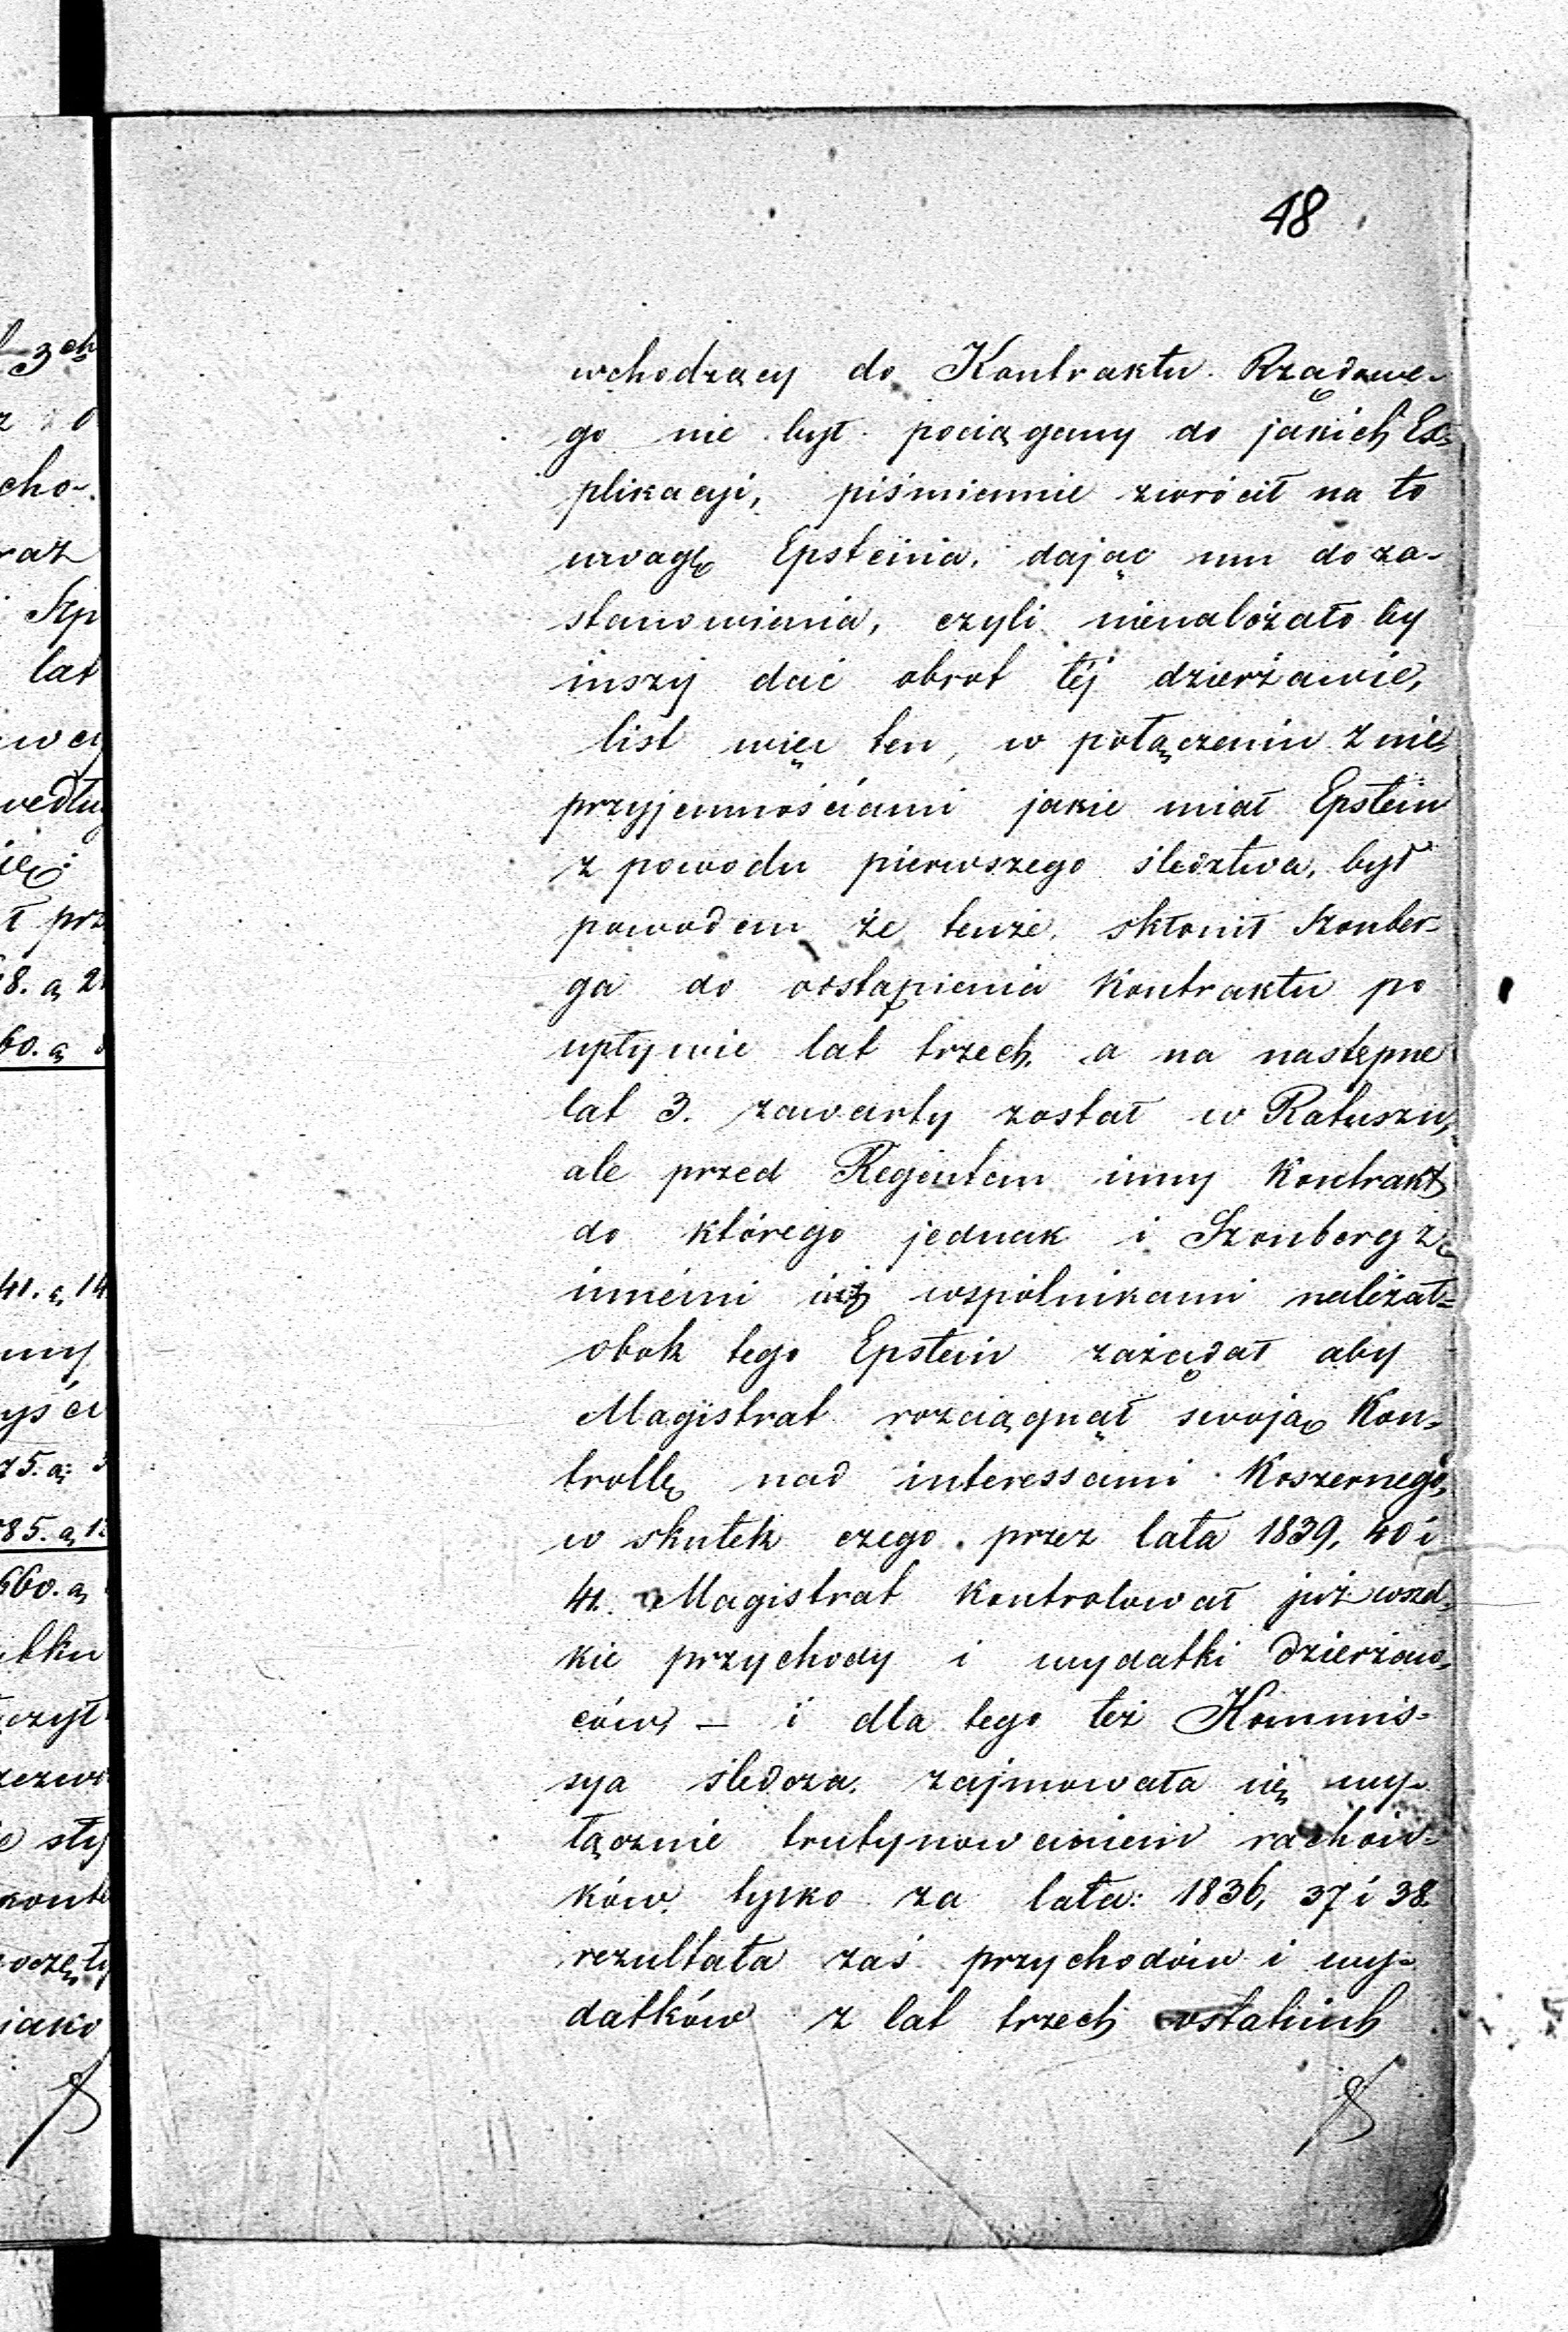 48
wchodzący do Kontraktu Rządowe-
go nie był pociągany do jakich Ex-
plikacji, piśmiennie zwrócił na to
uwagę Epsteina, dając mu do za-
stanowienia, czyli nienależało by
inszy dać obrot téj dzierżawie,
list więc ten, w połączeniu z nie-
przyjemnościami jakie miał Epstein
z powodu pierwszego śledztwa, był
powodem że tenże, skłonił Szonber-
ga do odstąpienia Kontraktu po
upływie lat trzech, a na następne
lat 3. zawarty został w Ratuszu,
ale przed Regentem inny Kontrakt
do którego jednak i Szonberg z
innémi wspólnikami należał-
obok tego Epstein zażądał aby
Magistrat rozciągnął swoją Kon-
trollę nad interessami Koszernego,
w skutek czego przez lata 1839, 40 i
41. Magistrat Kontrolował już wszel-
kie przychody i wydatki Dzierżaw-
ców, — i dla tego też Kommis-
sya śledcza, zajmowała się wy-
łącznie trutynowaniem rachun-
ków, tylko za lata: 1836, 37 i 38.
rezultata zaś przychodów i wy-
datków z lat trzech ostatnich
3ch
cho-
raz
Szp
lat
według
prz
8. a 2
60. a
41. a 14
75. a: 3
85. a 1
660. a
czył
jako